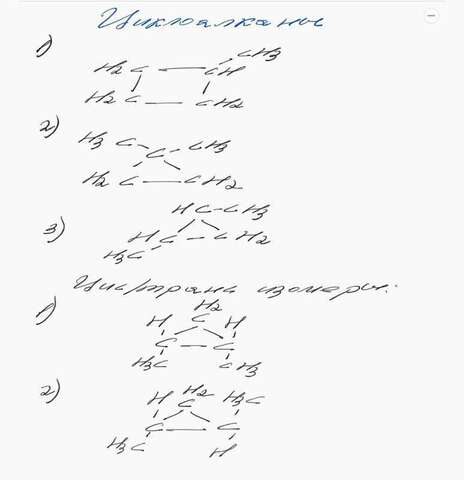 Циклоалканы
1)
CH3
H2C — CH
H2C — CH2
2) H3C C CH3
H2C — CH2
3)
HC-CH3
HC - CH2
H3C
Цис, транс изомеры:
1)
H2
H C H
C — C
H3C CH3
2)
H H2C H3C
C — C
H3C H